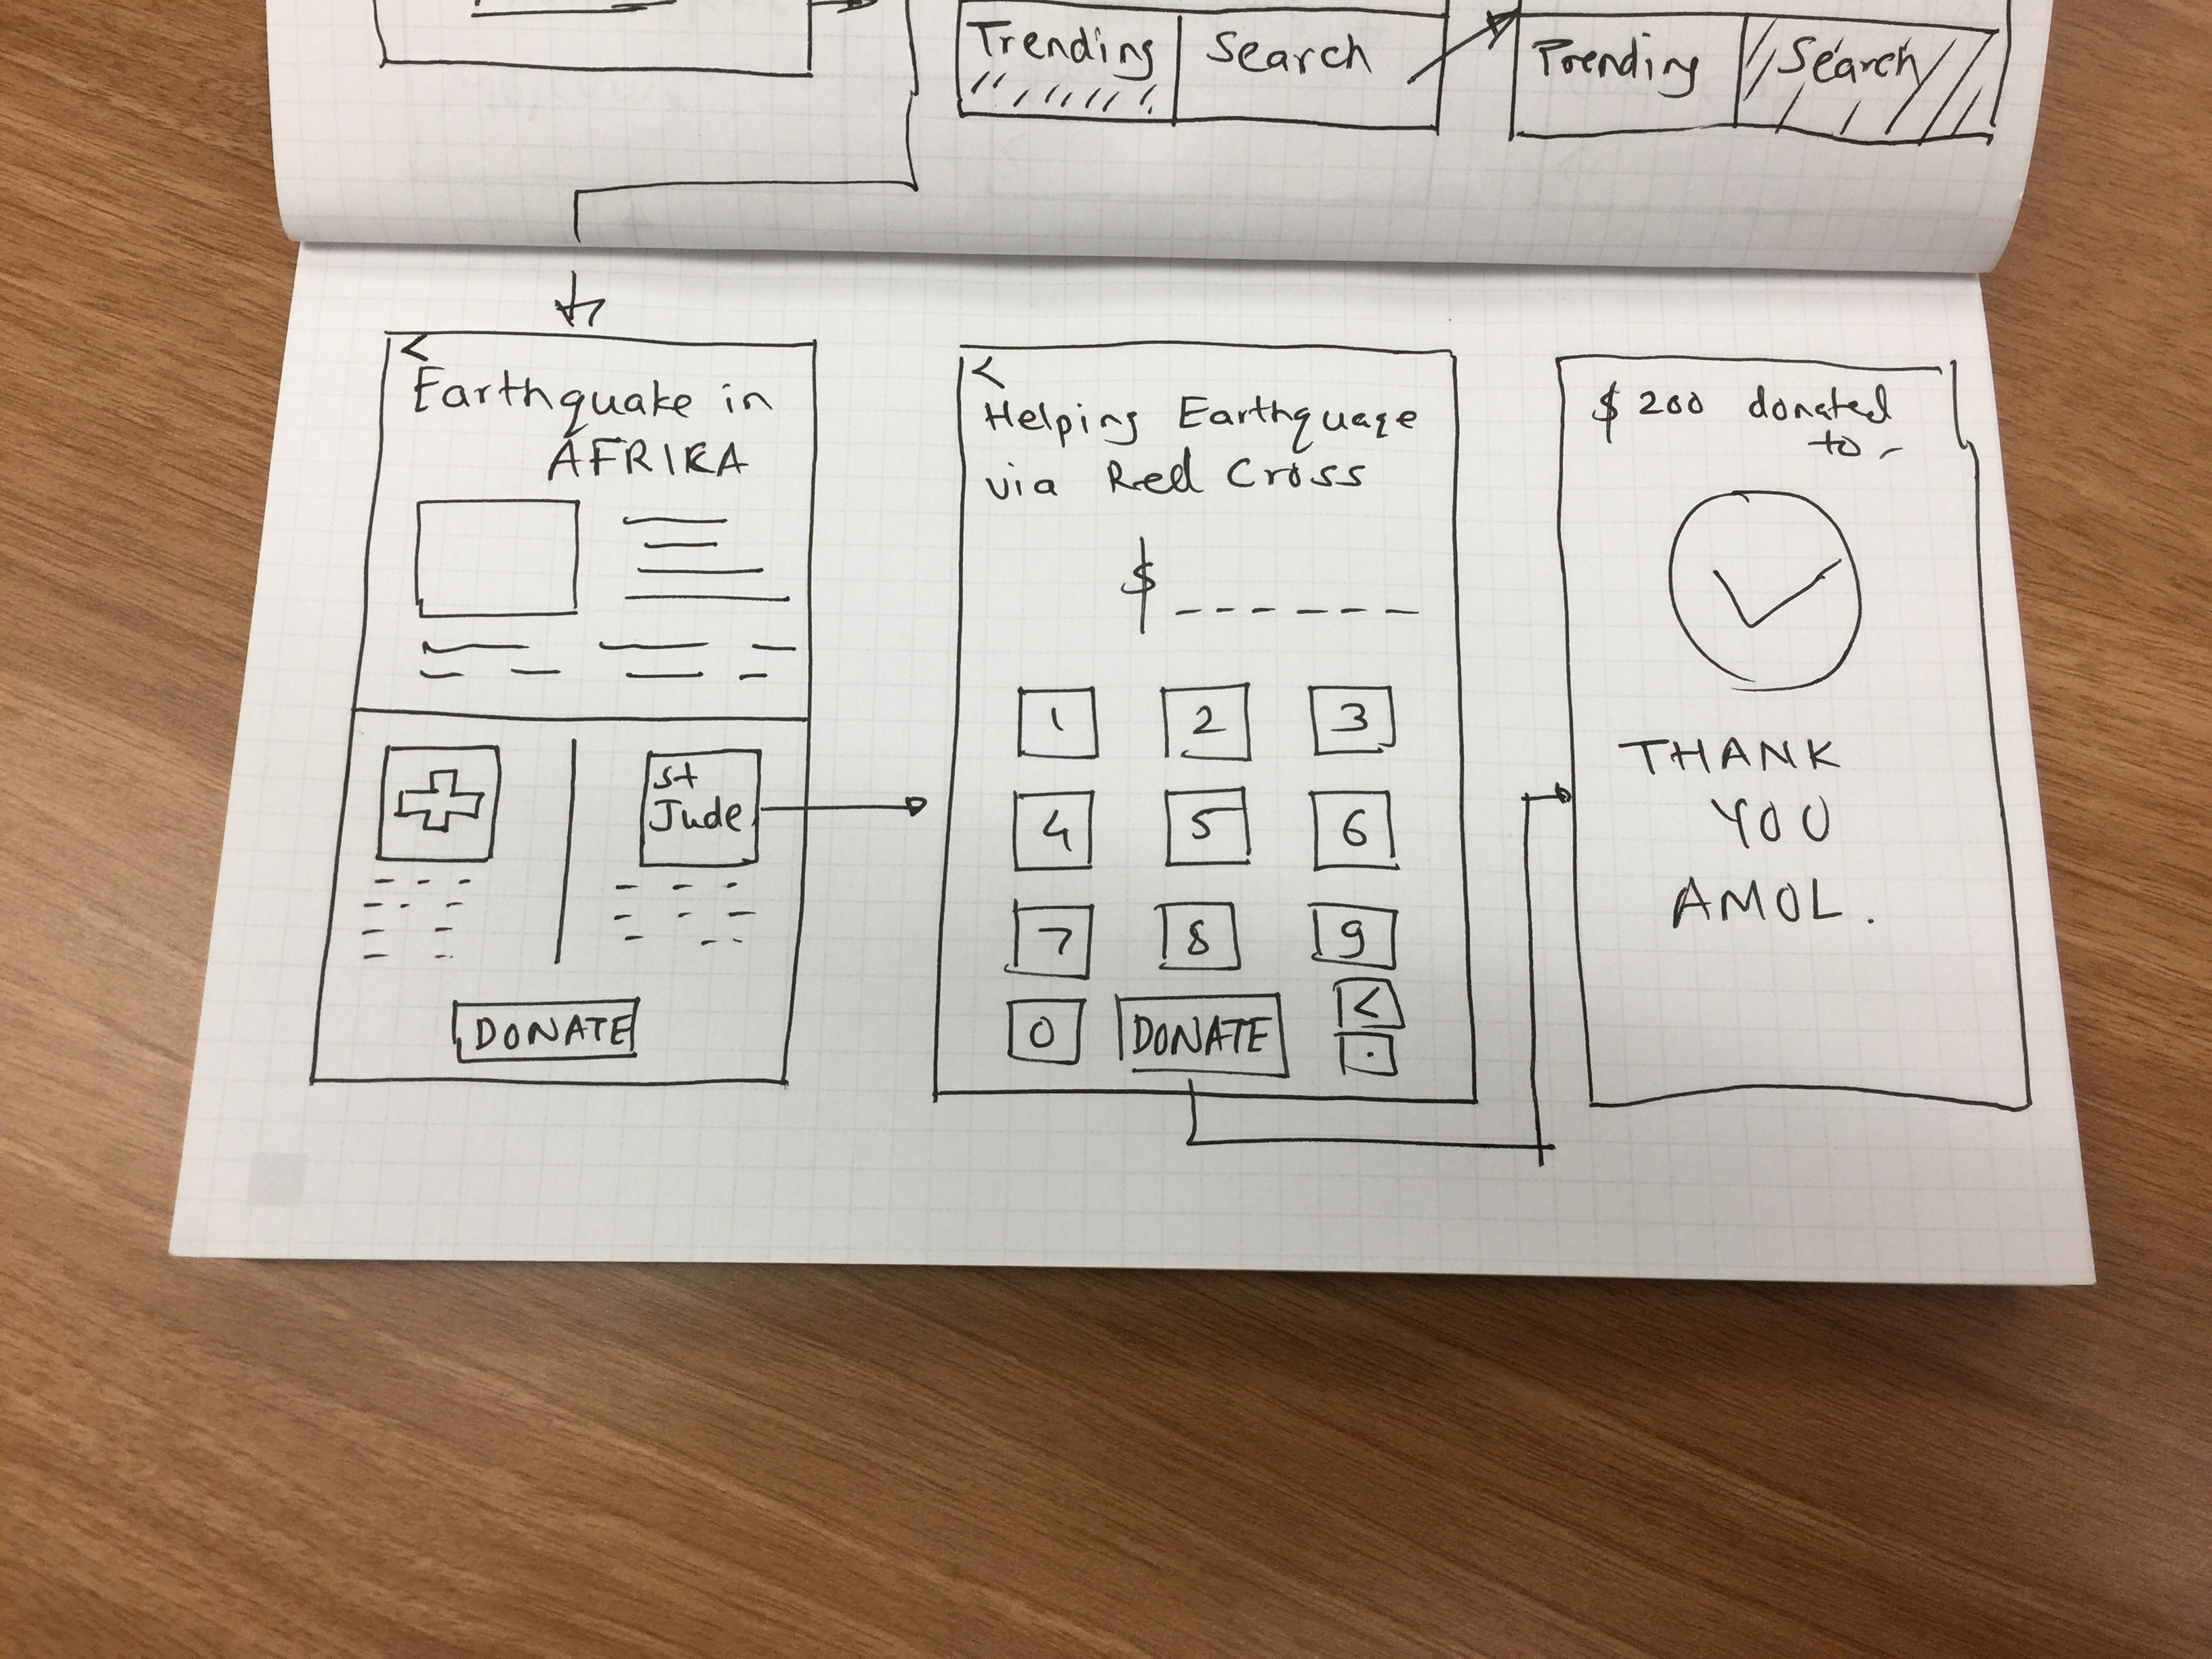 Trending
Search
Trending
Search
<
Earthquake in
AFRIKA
St
Jude
DONATE
<
Helping Earthquage
via Red Cross
$ _ _ _ _ _ _ _
1 2 3
4 5 6
7 8 9
0 DONATE <
.
$ 200 donated
to -
THANK
YOU
AMOL.